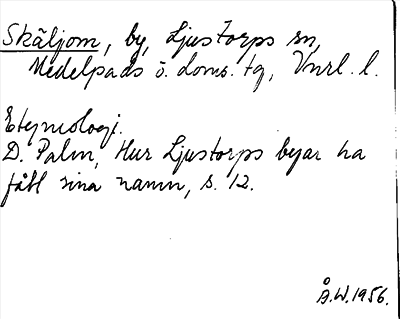 Skäljom, by, Ljustorps sn,
Medelpads ö. doms. tg, Vnrl. l.
Etymologi.
D. Palm, Hur Ljustorps byar ha
fått sina namn, s. 12.
Å.W.1956.